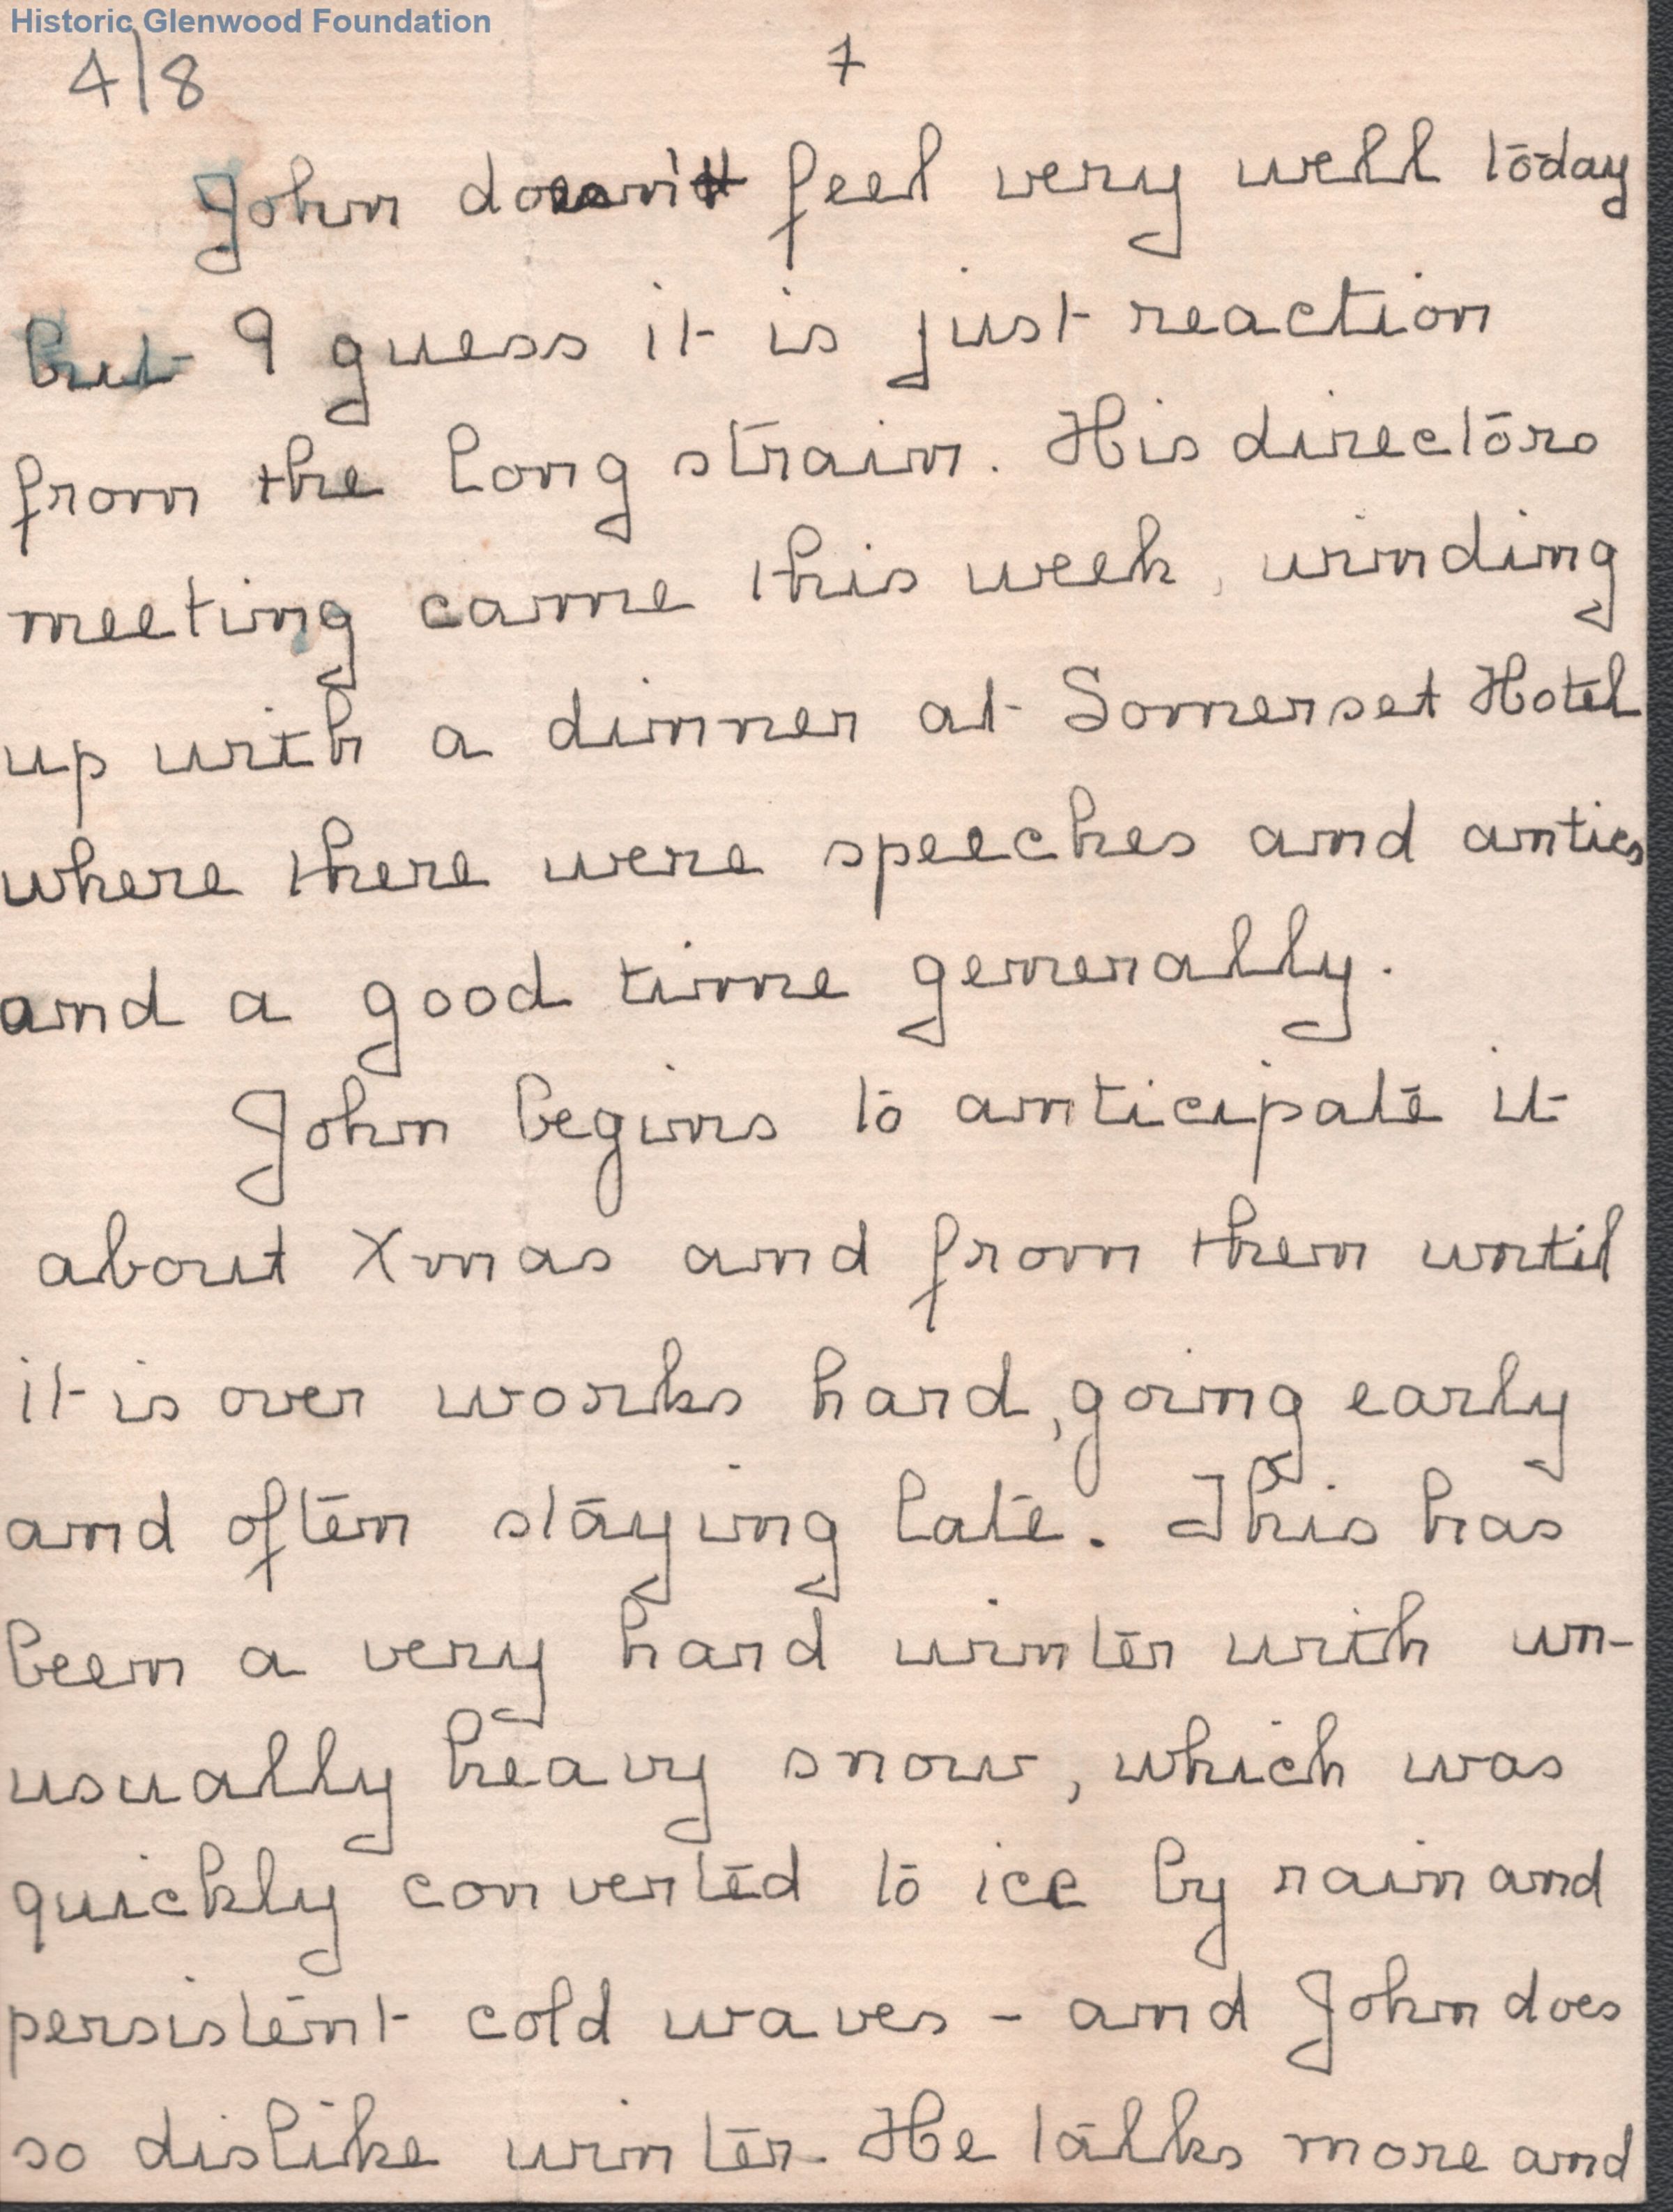 Historic Glenwood Foundation
4/8
7
John doesn't feel very well today
but I guess it is just reaction
from the long strain. His directors
meeting came this week, winding
up with a dinner at Somerset Hotel
where there were speeches and antics
and a good time generally.
John begins to anticipate it
about Xmas and from then until
it is over works hard, going early
and often staying late. This has
been a very hard winter with un-
usually heavy snow, which was
quickly converted to ice by rain and
persistent cold waves - and John does
so dislike winter. He talks more and